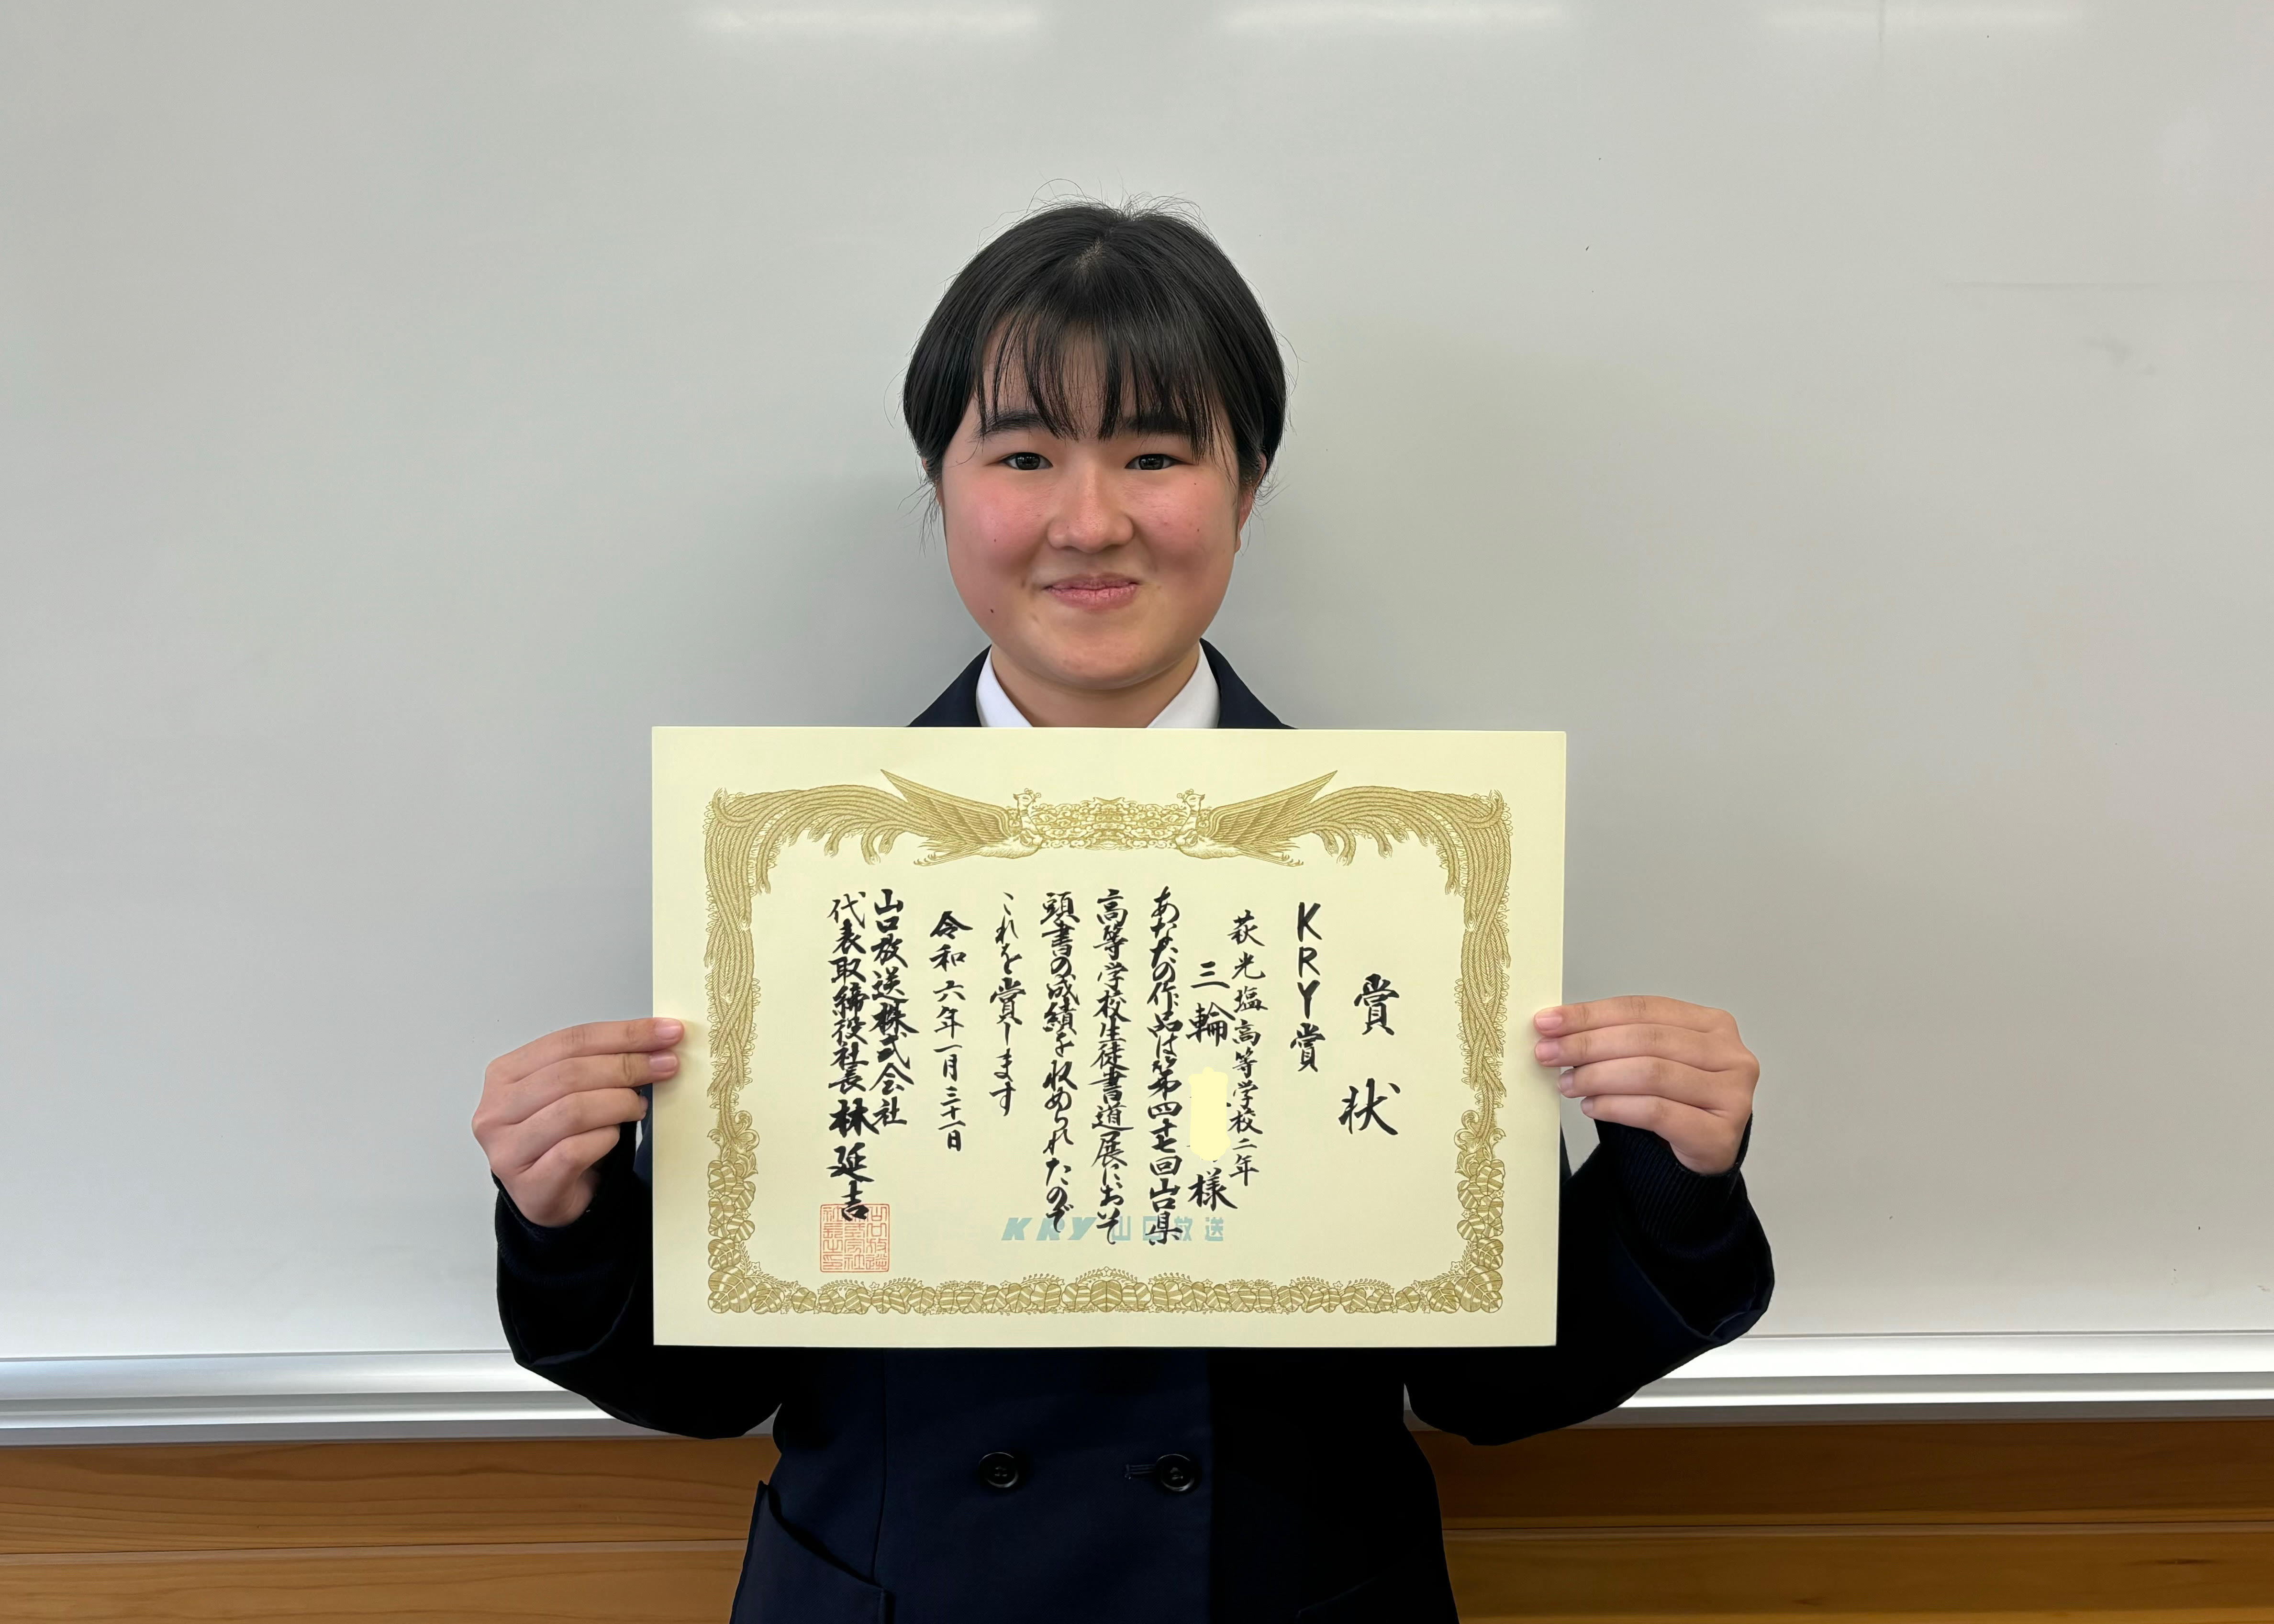 賞状
KRY賞
萩光塩高等学校二年
三輪 様
あなたの作品は第四十七回山口県
高等学校生徒書道展において
頭書の成績を収められたので
これを賞します
令和六年一月三十一日
山口放送株式会社
代表取締役社長 林延吉
KRY山口放送